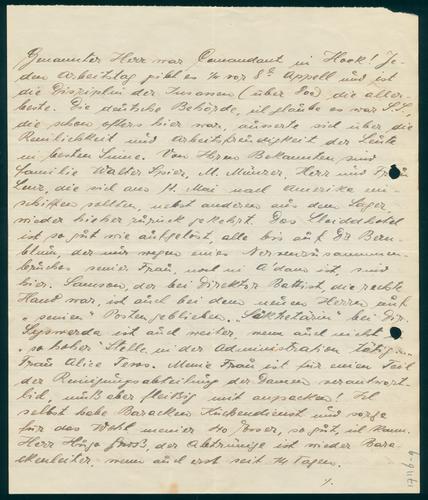 Genannter Herr war Comandant in Hook! Je-
den Arbeitstag gibt es ¼ vor 8h Appell und ist
die Disziplin der Insassen (über 800) die aller-
beste. Die deutsche Behörde, ich glaube es war S.S.,
die schon öfters hier war, äusserte sich über die
Reinlichkeit und Arbeitsfreudigkeit der Leute
im besten Sinne. Von Ihren Bekannten sind
Familie Walter Spier, M. Münzer, Herr und Frau
die sich am 11. Mai nach Amerika ein-
schiffen sollten, nebst anderen aus dem Lager
wieder hieher zurück gekehrt. Das
ist so gut wie aufgelöst, alle bis auf Dr Bern-
blum, der nur wegen eines Nervenzusammen-
bruches seiner Frau, noch in A'dam ist, sind
hier. Samson, der bei Direktor Battist die rechte
Hand war, ist auch bei dem neuen Herren auf
"seinen" Posten geblieben. Sekretärin bei Dir.
Syswerda ist auch weiter, wenn auch nicht
"so hoher" Stelle in der Administration tätig
Frau Alice Meine Frau ist für einen Teil
der Reinigungsabteilung der Damen verantwort-
lich, muß aber fleißig mit anpacken! Ich
selbst habe Baracken Küchendienst und sorge
für das Wohl meiner 40 Esser, so gut ich kann.
Herr Hugo der Abtrünige ist wieder Bara-
ckenleiter, wenn auch erst seit 14 Tagen.